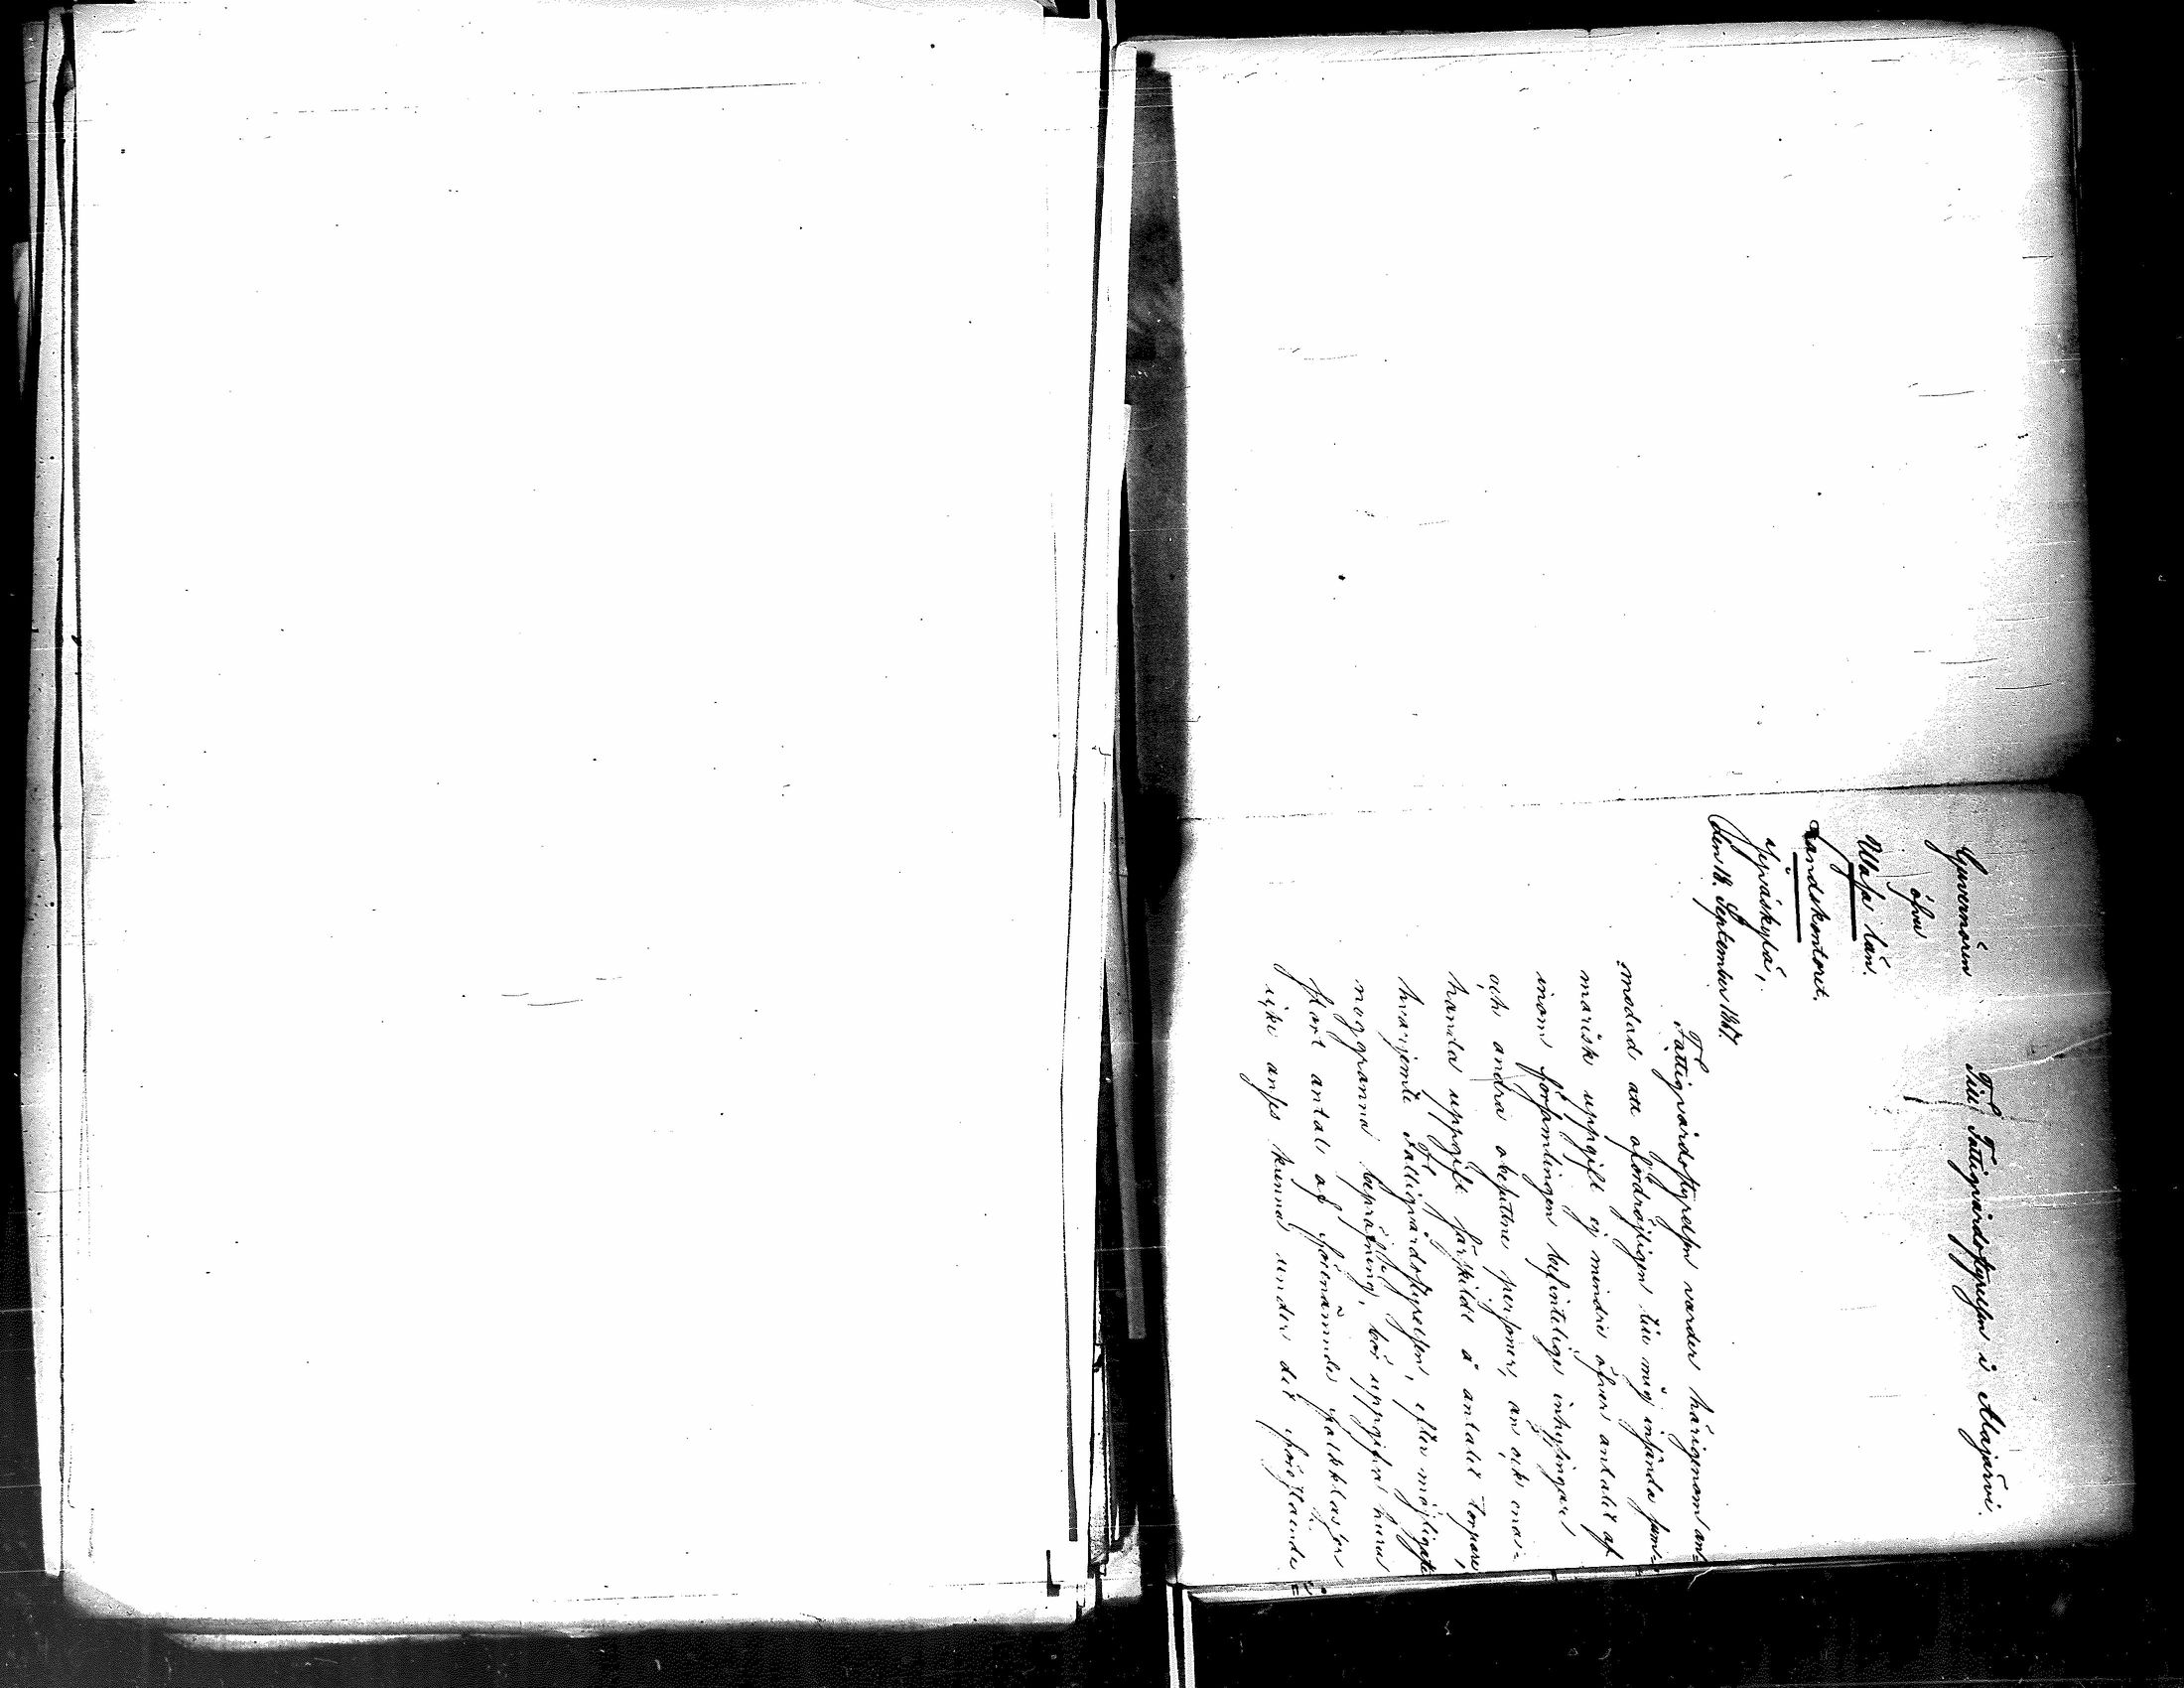 Guvernören
öfver
Wasa län.
Landskontoret.
Jyväskylä,
den 18. September 1867.
Till Fattigvårdsstyrelsen i Alajärvi.
Fattigvårdsstyrelsen varder härigenom an-
modad att ofördröjligen till mig insända sum-
marisk uppgift ej mindre öfver antalet af
inom församlingen befintelige inhysingar
och andra obesuttne personer, än ock ena-
handa uppgift särskildt å antalet torpare,
hvarjemte Fattigvårdsstyrelsen, efter möjligaste
noggranna bepröfning, bör uppgifva huru
stort antal af förenämnde folkklasser
icke anses kunna under det förestående